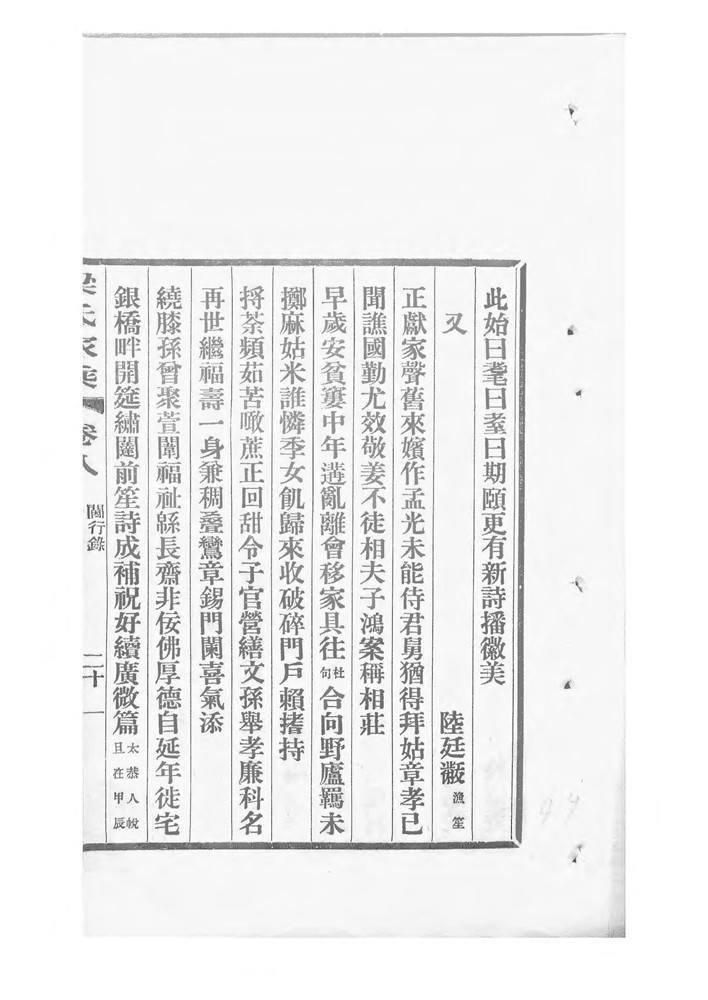 此始曰耄曰耋曰期頤更有新詩播徽美
又
陸廷黻漁笙
正獻家聲舊來嬪作孟光未能侍君舅猶得拜姑章孝已
聞譙國勤尤效敬姜不徒相夫子鴻案稱相莊
早歲安貧窶中年遘亂離會移家具往杜句合向野廬羈未
擲麻姑米誰憐季女飢歸來收破碎門戶賴搘持
捋荼頻茹苦噉蔗正回甜令子官營繕文孫舉孝廉科名
再世繼福壽一身兼稠疊鸞章錫門闌喜氣添
繞膝孫曾聚萱闈福祉緜長齋非佞佛厚德自延年徙宅
銀橋畔開筵繡闥前笙詩成補祝好續廣微篇太恭人帨且在甲辰
梁氏家乘 卷八 閫行錄 二十一